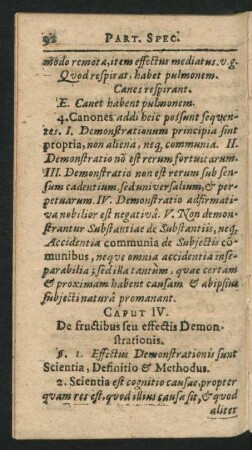 92 PART. SPEC.
modo remota, item effectus mediatus. v. g.
Quod respirat, habet pulmonem.
Canes respirant.
E. Canes habent pulmonem.
4. Canones addi heic possunt sequen-
tes. I. Demonstrationum principia sint
propria, non aliena, neq; communia. II.
Demonstratio nō est rerum fortuitarum.
III. Demonstratio non est rerum sub sen-
sum cadentium, sed universalium, & per-
petuarum. IV. Demonstratio adfirmati-
va nobilior est negativâ. V. Non demon-
strantur Substantiae de Substantiis, neq;
Accidentia communia de Subjectis co-
munibus, neque omnia accidentia inse-
parabilia; sed ila tantum, quae certam
& proximam habent causam & ab ipsius
subjecti naturâ promanant.
CAPUT IV.
De fructibus seu effectis Demon-
strationis.
§. 1. Effectus Demonstrationis sunt
Scientia, Definitio & Methodus.
2. Scientia est cognitio causae, propter
quam res est, quod illius causa sit, & quod
aliter